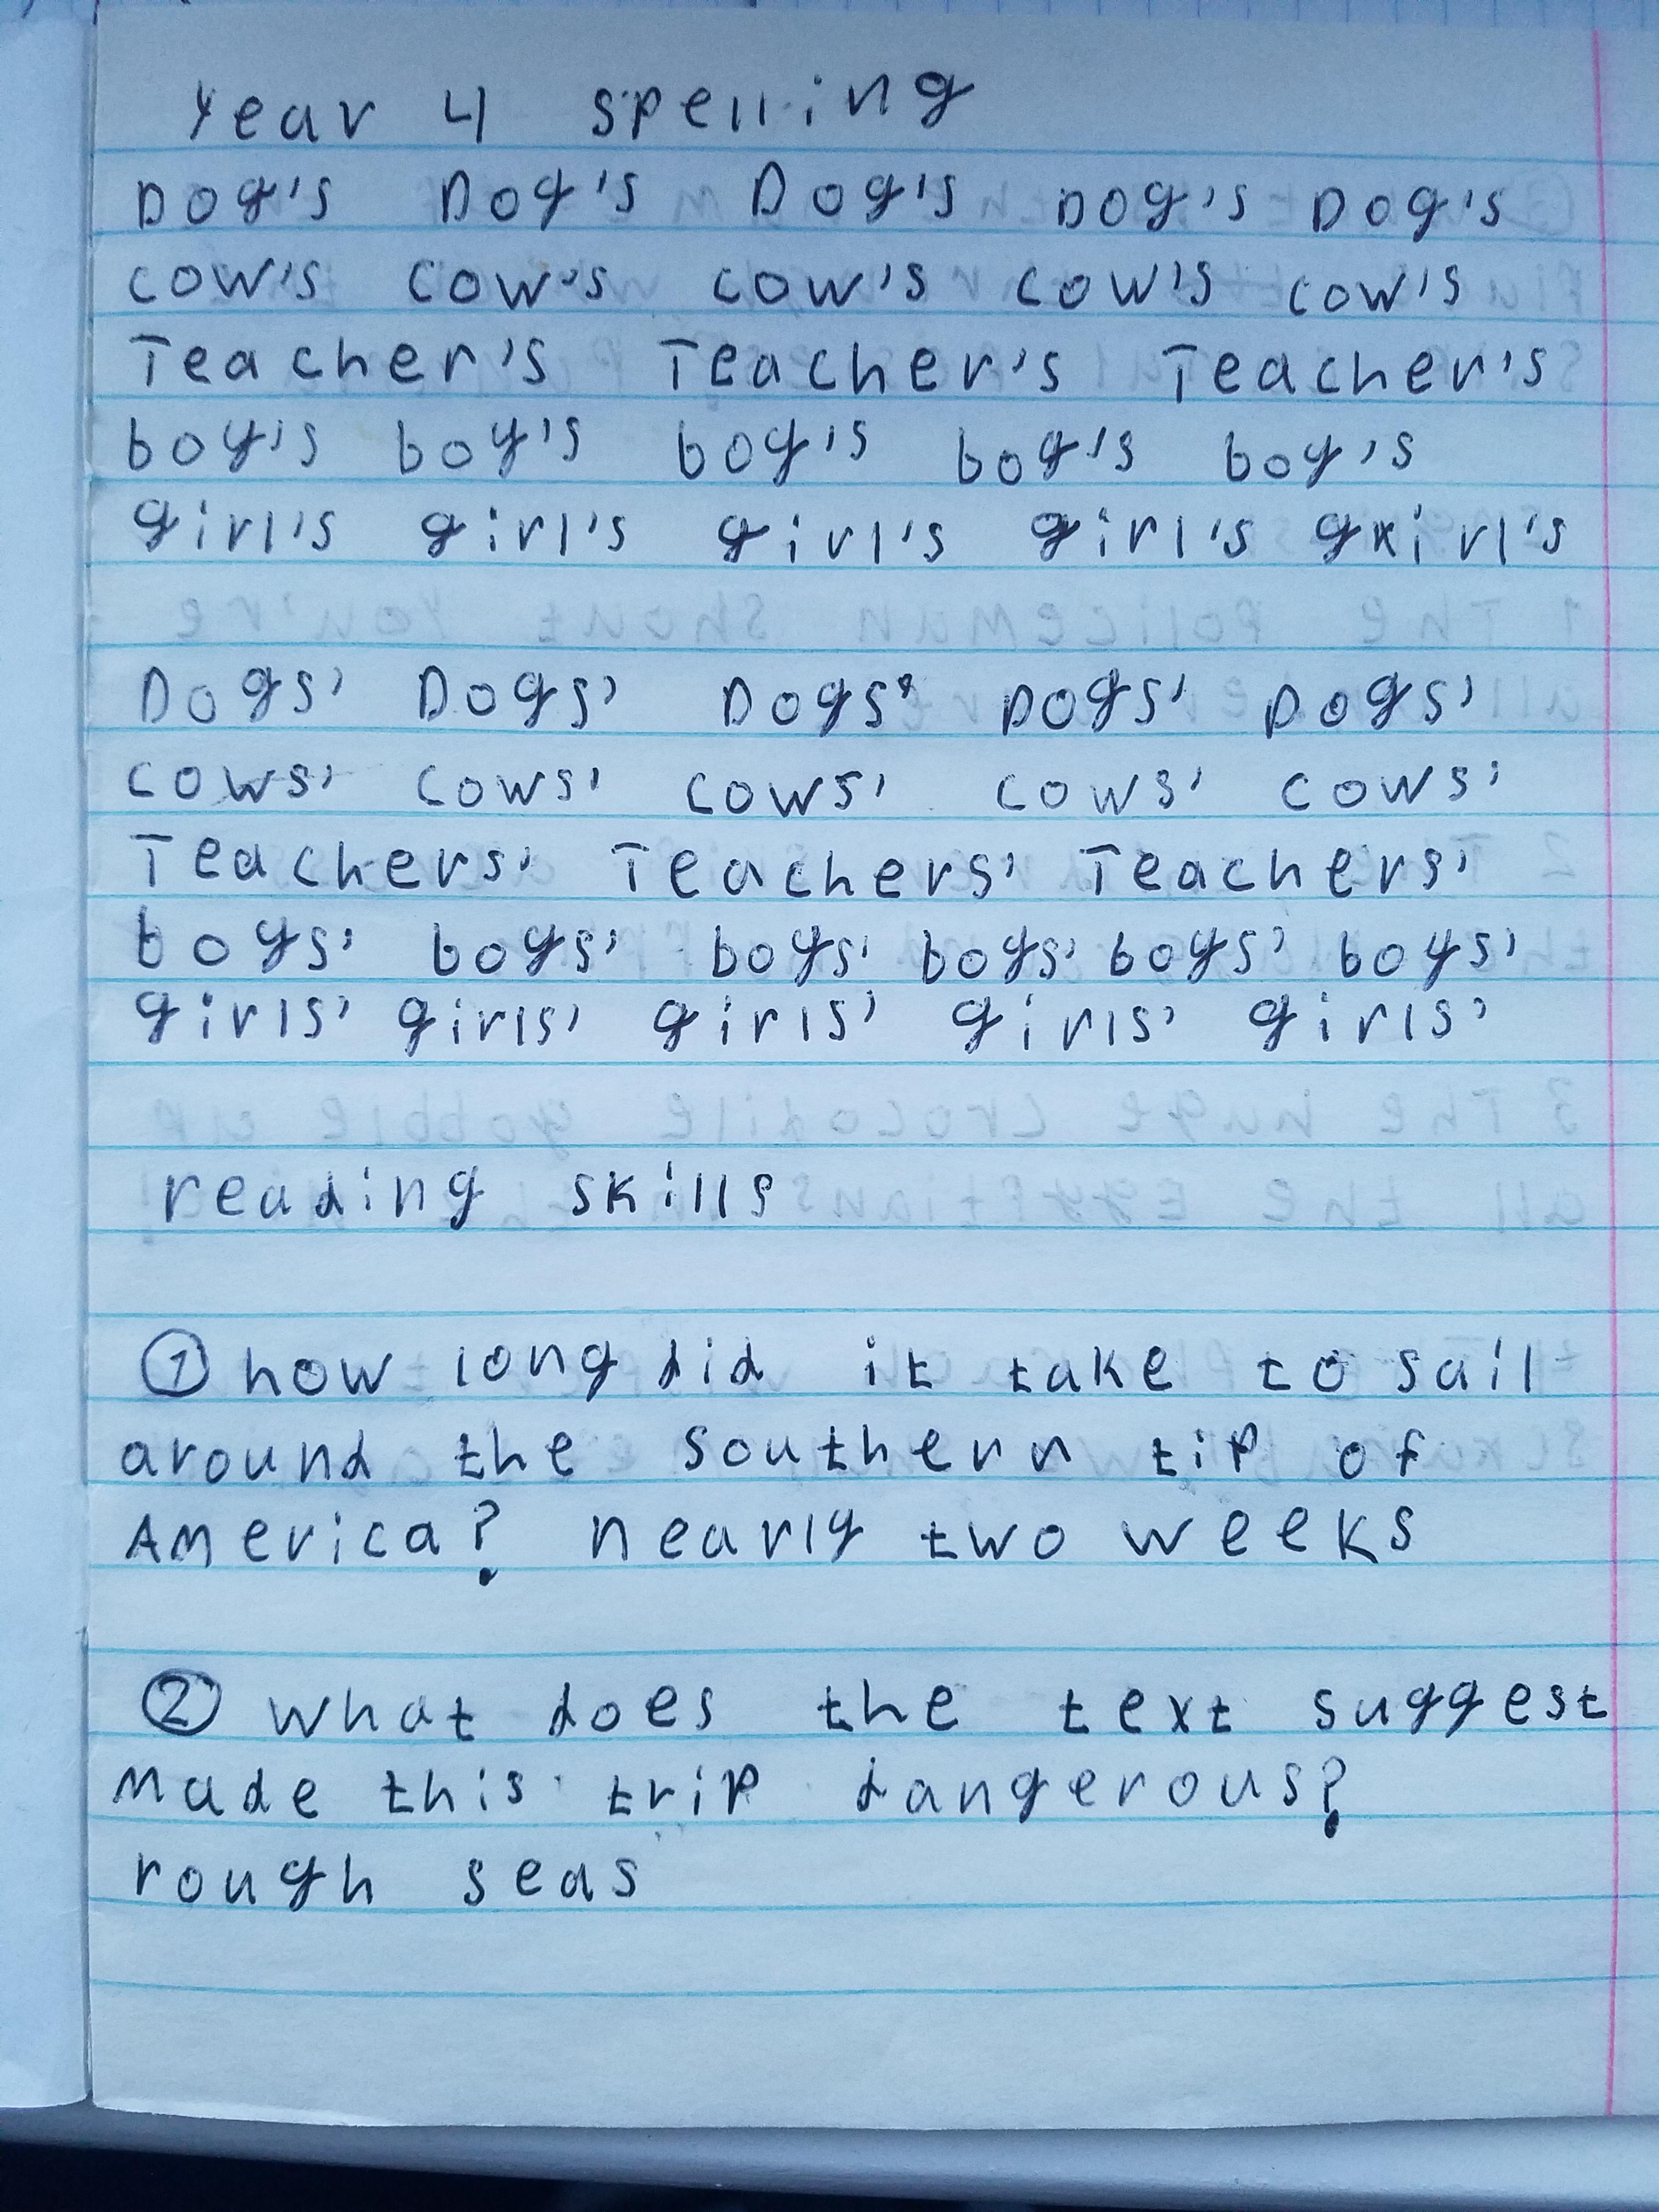 Year 4 spelling
Dog's Dog's Dog's Dog's Dog's
cow's cow's cow's cow's cow's
Teacher's Teacher's Teacher's
boy's boy's boy's boy's boy's
girl's girl's girl's girl's gxirl's
Dogs' Dogs' Dogs' Dogs' Dogs'
cows' cows' cows' cows' cows'
Teachers' Teachers' Teachers'
boys' boys' boys' boys' boys' boys'
girls' girls' girls' girls' girls'
reading skills
① how long did it take to sail
around the southern tip of
America? nearly two weeks
② what does the text suggest
made this trip dangerous?
rough seas